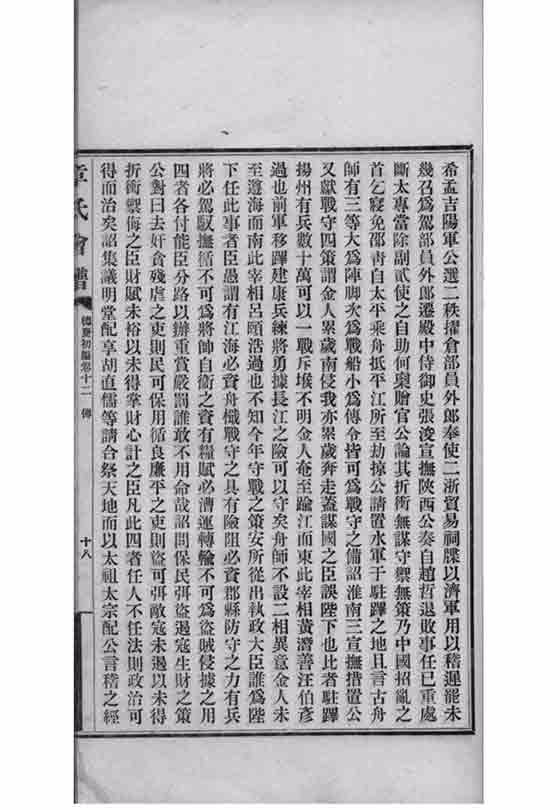 希孟吉陽軍公選二秩擢倉部員外郎奉使二浙貿易祠牒以濟軍用以稽遲罷未
幾召爲駕部員外郎遷殿中侍御史張浚宣撫陝西公奏自趙哲退敗事任已重處
斷太專當除副貳使之自助何㮚贈官公論其折衝無謀守禦無策乃中國招亂之
首乞寢免邵青自太平乘舟抵平江所至劫掠公請置水軍于駐蹕之地且言古舟
師有三等大爲陣脚次爲戰船小爲傳令皆可爲戰守之備詔淮南三宣撫措置公
又獻戰守四策謂金人累歲南侵我亦累歲奔走蓋謀國之臣誤陛下也比者駐蹕
揚州有兵數十萬可以一戰斥堠不明金人奄至踰江而東此宰相黃潛善汪伯彥
過也前軍移蹕建康兵練將勇據長江之險可以守矣舟師不設二相異意金人未
至遵海而南此宰相呂頤浩過也不知今年守戰之策安所從出執政大臣誰爲陛
下任此事者臣愚謂有江海必資舟檝戰守之具有險阻必資郡縣防守之力有兵
將必駕馭撫循不可爲將帥自衛之資有糧賦必漕運轉輸不可爲盜賊侵據之用
四者各付能臣分路以辦重賞嚴罰誰敢不用命哉詔問保民弭盜遏寇生財之策
公對曰去奸貪殘虐之吏則民可保用循良廉平之吏則盜可弭敵寇未遏以未得
折衝禦侮之臣財賦未裕以未得掌財心計之臣凡此四者任人不任法則政治可
得而治矣詔集議明堂配享胡直孺等請合祭天地而以太祖太宗配公言稽之經
章氏會譜
德慶初編卷十二 傳
十八